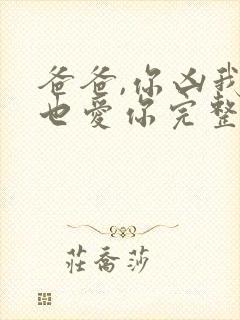 爸爸,你凶我
也愛你完整
莊喬莎